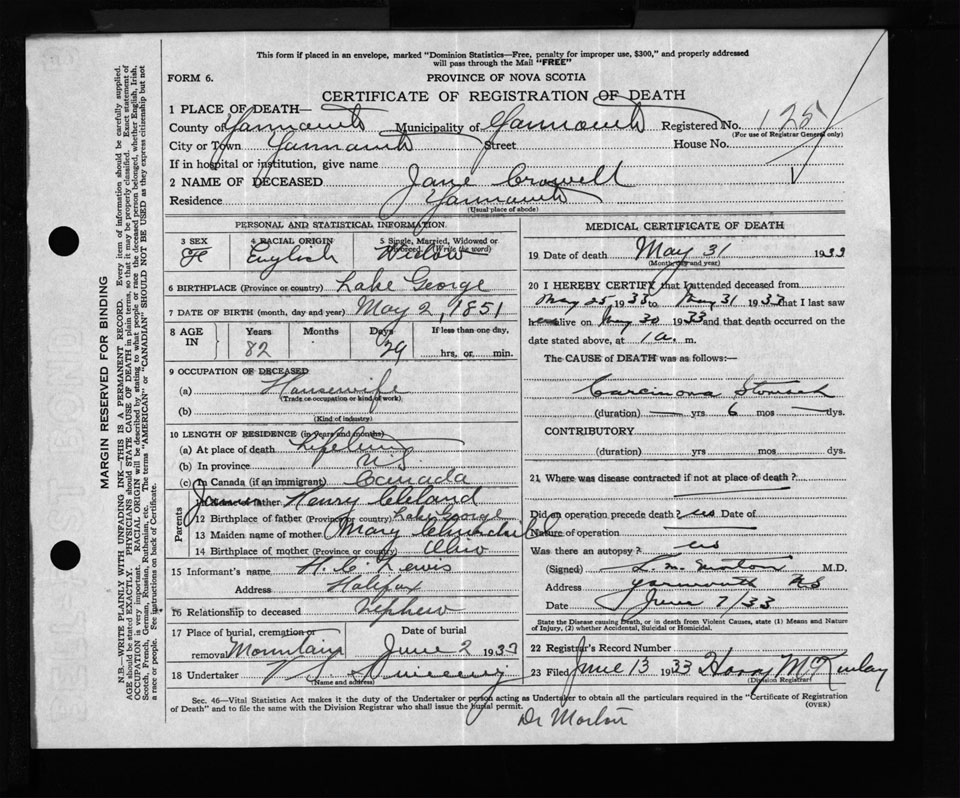 This form if placed in an envelope, marked "Dominion Statistics—Free, penalty for improper use, $300," and properly addressed
will pass through the Mail "FREE"
FORM 6.
PROVINCE OF NOVA SCOTIA
CERTIFICATE OF REGISTRATION OF DEATH
1 PLACE OF DEATH—
County of Yarmouth Municipality of Yarmouth Registered No. 125
(For use of Registrar General only)
City or Town Yarmouth Street House No.
If in hospital or institution, give name
2 NAME OF DECEASED Jane Crowell
Residence Yarmouth
(Usual place of abode)
PERSONAL AND STATISTICAL INFORMATION
3 SEX F
4 RACIAL ORIGIN English
5 Single, Married, Widowed or Divorced. (Write the word) Widow
6 BIRTHPLACE (Province or country) Lake George
7 DATE OF BIRTH (month, day and year) May 2, 1851
8 AGE IN Years 82 Months Days 29 If less than one day, hrs. or min.
9 OCCUPATION OF DECEASED
(a) Housewife
(Trade or occupation or kind of work)
(b)
(Kind of industry)
10 LENGTH OF RESIDENCE (in years and months)
(a) At place of death Lifetime
(b) In province N.S.
(c) In Canada (if an immigrant) Canada
Parents
11 Name of father Henry Cleland
12 Birthplace of father (Province or country) Lake George
13 Maiden name of mother Mary
14 Birthplace of mother (Province or country) Ohio
15 Informant's name H. C. Lewis
Address Halifax
16 Relationship to deceased Nephew
17 Place of burial, cremation or removal Mountain
Date of burial June 2 1933
18 Undertaker V. S. Sweeny
(Name and address)
MEDICAL CERTIFICATE OF DEATH
19 Date of death May 31 1933
(Month, day and year)
20 I HEREBY CERTIFY that I attended deceased from
May 25, 1933 to May 31 1933 that I last saw
her alive on May 30 1933 and that death occurred on the
date stated above, at 1 a. m.
The CAUSE of DEATH was as follows:—
Carcinoma Stomach
(duration) — yrs 6 mos — dys.
CONTRIBUTORY
(duration) yrs. mos. dys.
21 Where was disease contracted if not at place of death?
Did an operation precede death? no Date of
Nature of operation
Was there an autopsy? no
(Signed) L. M. Morton M.D.
Address Yarmouth N S
Date June 7/33
State the Disease causing Death, or in death from Violent Causes, state (1) Means and Nature
of Injury, (2) whether Accidental, Suicidal or Homicidal.
22 Registrar's Record Number
23 Filed June 13 1933 Harry McKinlay
(Division Registrar)
Sec. 46—Vital Statistics Act makes it the duty of the Undertaker or person acting as Undertaker to obtain all the particulars required in the "Certificate of Registration
of Death" and to file the same with the Division Registrar who shall issue the burial permit.
(OVER)
Dr Morton
MARGIN RESERVED FOR BINDING
N.B.—WRITE PLAINLY WITH UNFADING INK—THIS IS A PERMANENT RECORD. Every item of information should be carefully supplied.
AGE should be stated EXACTLY. PHYSICIANS should STATE CAUSE OF DEATH in plain terms, so that it may be properly classified. Exact statement of
OCCUPATION is very important. RACIAL ORIGIN will be described by stating to what people or race the deceased person belonged, whether English, Irish,
Scotch, French, German, Russian, Ruthenian, etc. The terms "AMERICAN" or "CANADIAN" SHOULD NOT BE USED as they express citizenship but not
a race or people. See instructions on back of Certificate.